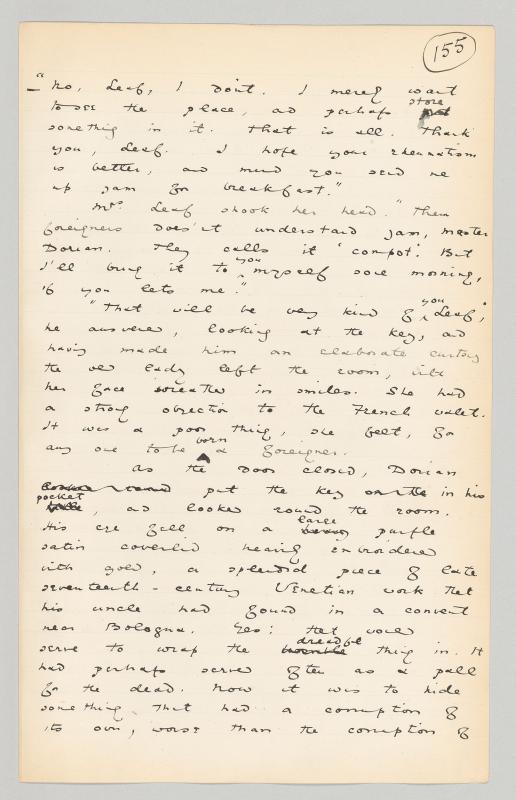 155
"No, Leaf, I don't. I merely want
to see the place, and perhaps store
something in it. That is all. Thank
you, Leaf. I hope your rheumatism
is better, and mind you send me
up jam for breakfast."
Mrs. Leaf shook her head. "Them
foreigners does'nt understand jam, master
Dorian. They calls it 'compot'. But
I'll bring it to you myself some morning,
if you lets me."
"That will be very kind of you Leaf,"
he answered, looking at the key, and
having made him an elaborate curtsey
the old lady left the room, her
face wreathed in smiles. She had
a strong objection to the French valet.
It was a poor thing, she felt, for
any one to be born a foreigner.
As the door closed, Dorian
put the key in his
pocket, and looked round the room.
His eye fell on a large purple
satin coverlid heavily embroidered
with gold, a splendid piece of late
seventeenth-century Venetian work that
his uncle had found in a convent
near Bologna. Yes: that would
serve to wrap the dreadful thing in. It
had perhaps served often as a pall
for the dead. Now it was to hide
something that had a corruption of
its own, worse than the corruption of